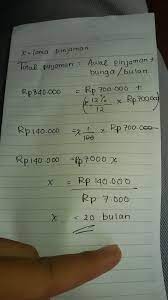 x = lama pinjaman
Total pinjaman = Awal pinjaman +
bunga/bulan
Rp 840.000 = Rp 700.000 +
(x 12% / 12 x Rp 700.000)
Rp 140.000 = x 1/100 x Rp 700.000
Rp 140.000 = Rp 7000 x
x = Rp 140.000
Rp 7.000
x = 20 bulan